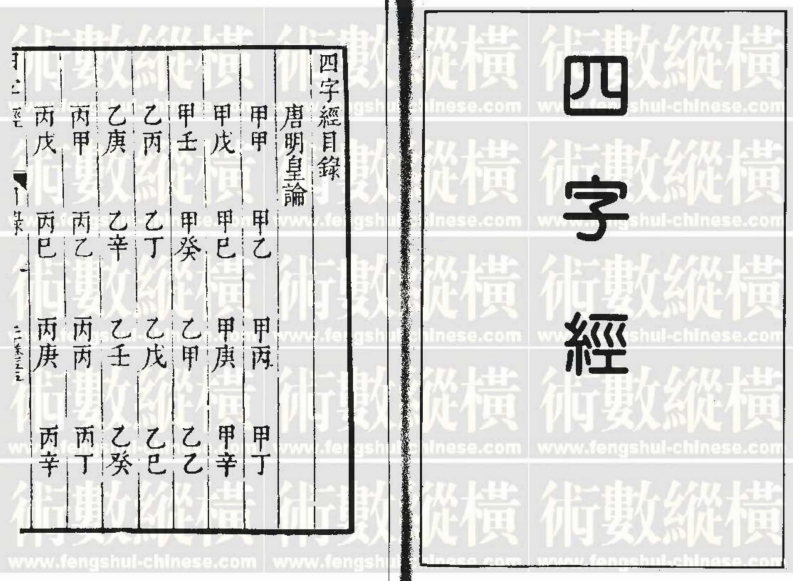 四字經
四字經目錄
唐明皇論
甲甲 甲乙 甲丙 甲丁
甲戊 甲巳 甲庚 甲辛
甲壬 甲癸 乙甲 乙乙
乙丙 乙丁 乙戊 乙巳
乙庚 乙辛 乙壬 乙癸
丙甲 丙乙 丙丙 丙丁
丙戊 丙巳 丙庚 丙辛
術數縱橫
www.fengshui-chinese.com